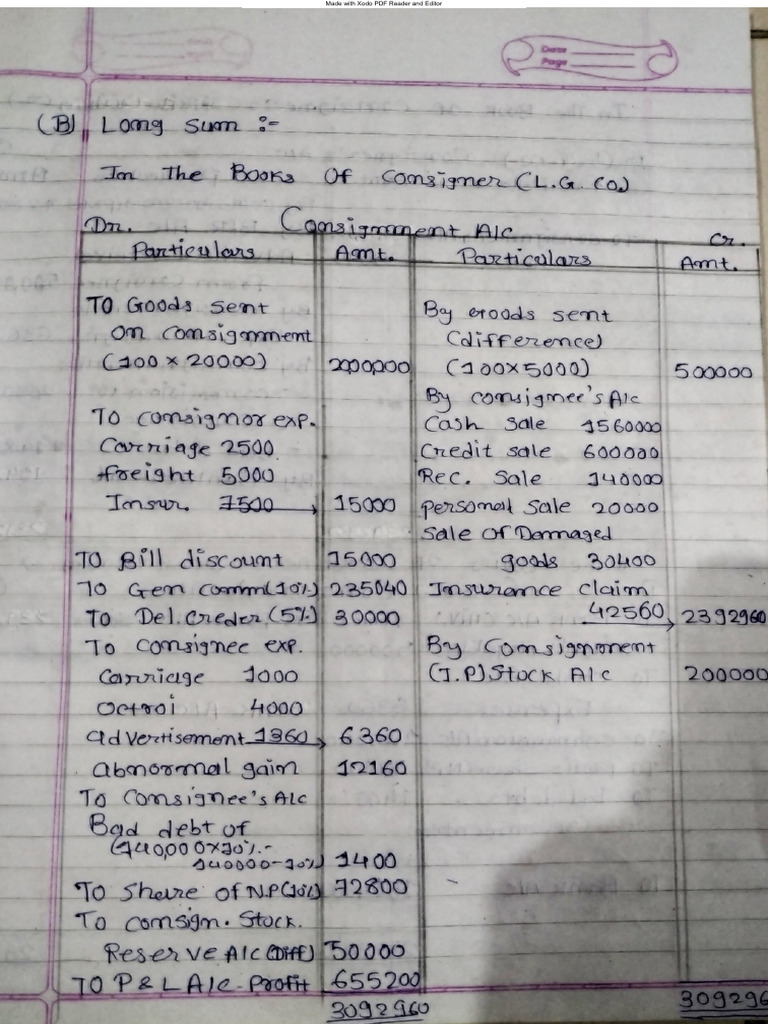 Made with Xodo PDF Reader and Editor
Date
Page
(B) Long sum :-
In The Books Of Consigner (L.G. Co.)
Dr. Consignment A/c Cr.
Particulars Amt. Particulars Amt.
To Goods sent
on consignment
(100 × 20000) 2000000
To consignor exp.
Carriage 2500
freight 5000
Insur. 7500 15000
To Bill discount 15000
To Gen comm (10%) 235040
To Del. creder (5%) 30000
To consignee exp.
Carriage 1000
Octroi 4000
advertisement 1360 6360
abnormal gain 12160
To Consignee's A/c
Bad debt of
(140,000×10%.-
140000-10%) 1400
To Share of N.P (10%) 72800
To consign. Stock.
Reserve A/c (Diff) 50000
To P & L A/c - Profit 655200
3092960
By Goods sent
(difference)
(100×5000) 500000
By consignee's A/c
Cash sale 1560000
Credit sale 600000
Rec. sale 140000
personal sale 20000
sale of Damaged
goods 30400
Insurance claim
42560 2392960
By Consignment
(I.P) Stock A/c 200000
309296